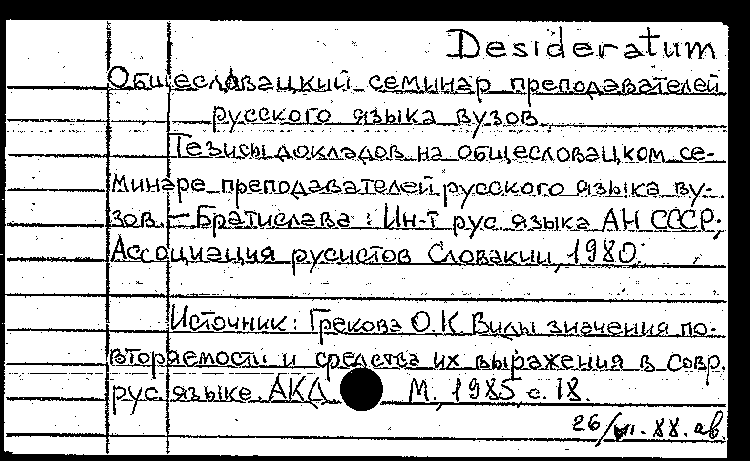 Desideratum
Общеславацкий семинар преподавателей
русского языка вузов.
Тезисы докладов на общесловацком се-
минаре преподавателей русского языка ву-
зов. – Братислава : Ин-т рус. языка АН СССР;
Ассоциация русистов Словакии, 1980.
Источник: Грекова О.К. Виды значения по-
вторяемости и средства их выражения в совр.
рус. языке. АКД М., 1985, с. 18.
26/VII.88. ав.